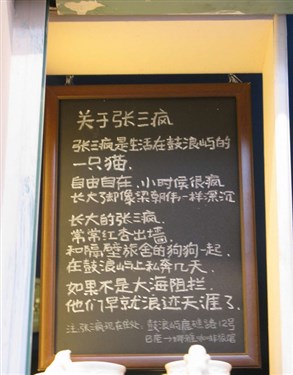 关于张三疯
张三疯是生活在鼓浪屿的
一只猫.
自由自在.小时候很疯
长大了却像梁朝伟一样深沉
长大的张三疯.
常常红杏出墙.
和隔壁旅舍的狗狗一起.
在鼓浪屿上私奔几天.
如果不是大海阻拦.
他们早就浪迹天涯了.
注:张三疯现在住处: 鼓浪屿鹿礁路12号
B座一娜雅咖啡旅馆